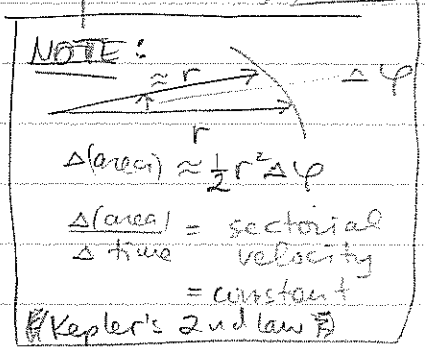 NOTE:
≈ r
Δφ
r
Δ(area) ≈ ½ r² Δφ
Δ(area) / Δ time = sectorial velocity
= constant
Kepler's 2nd law